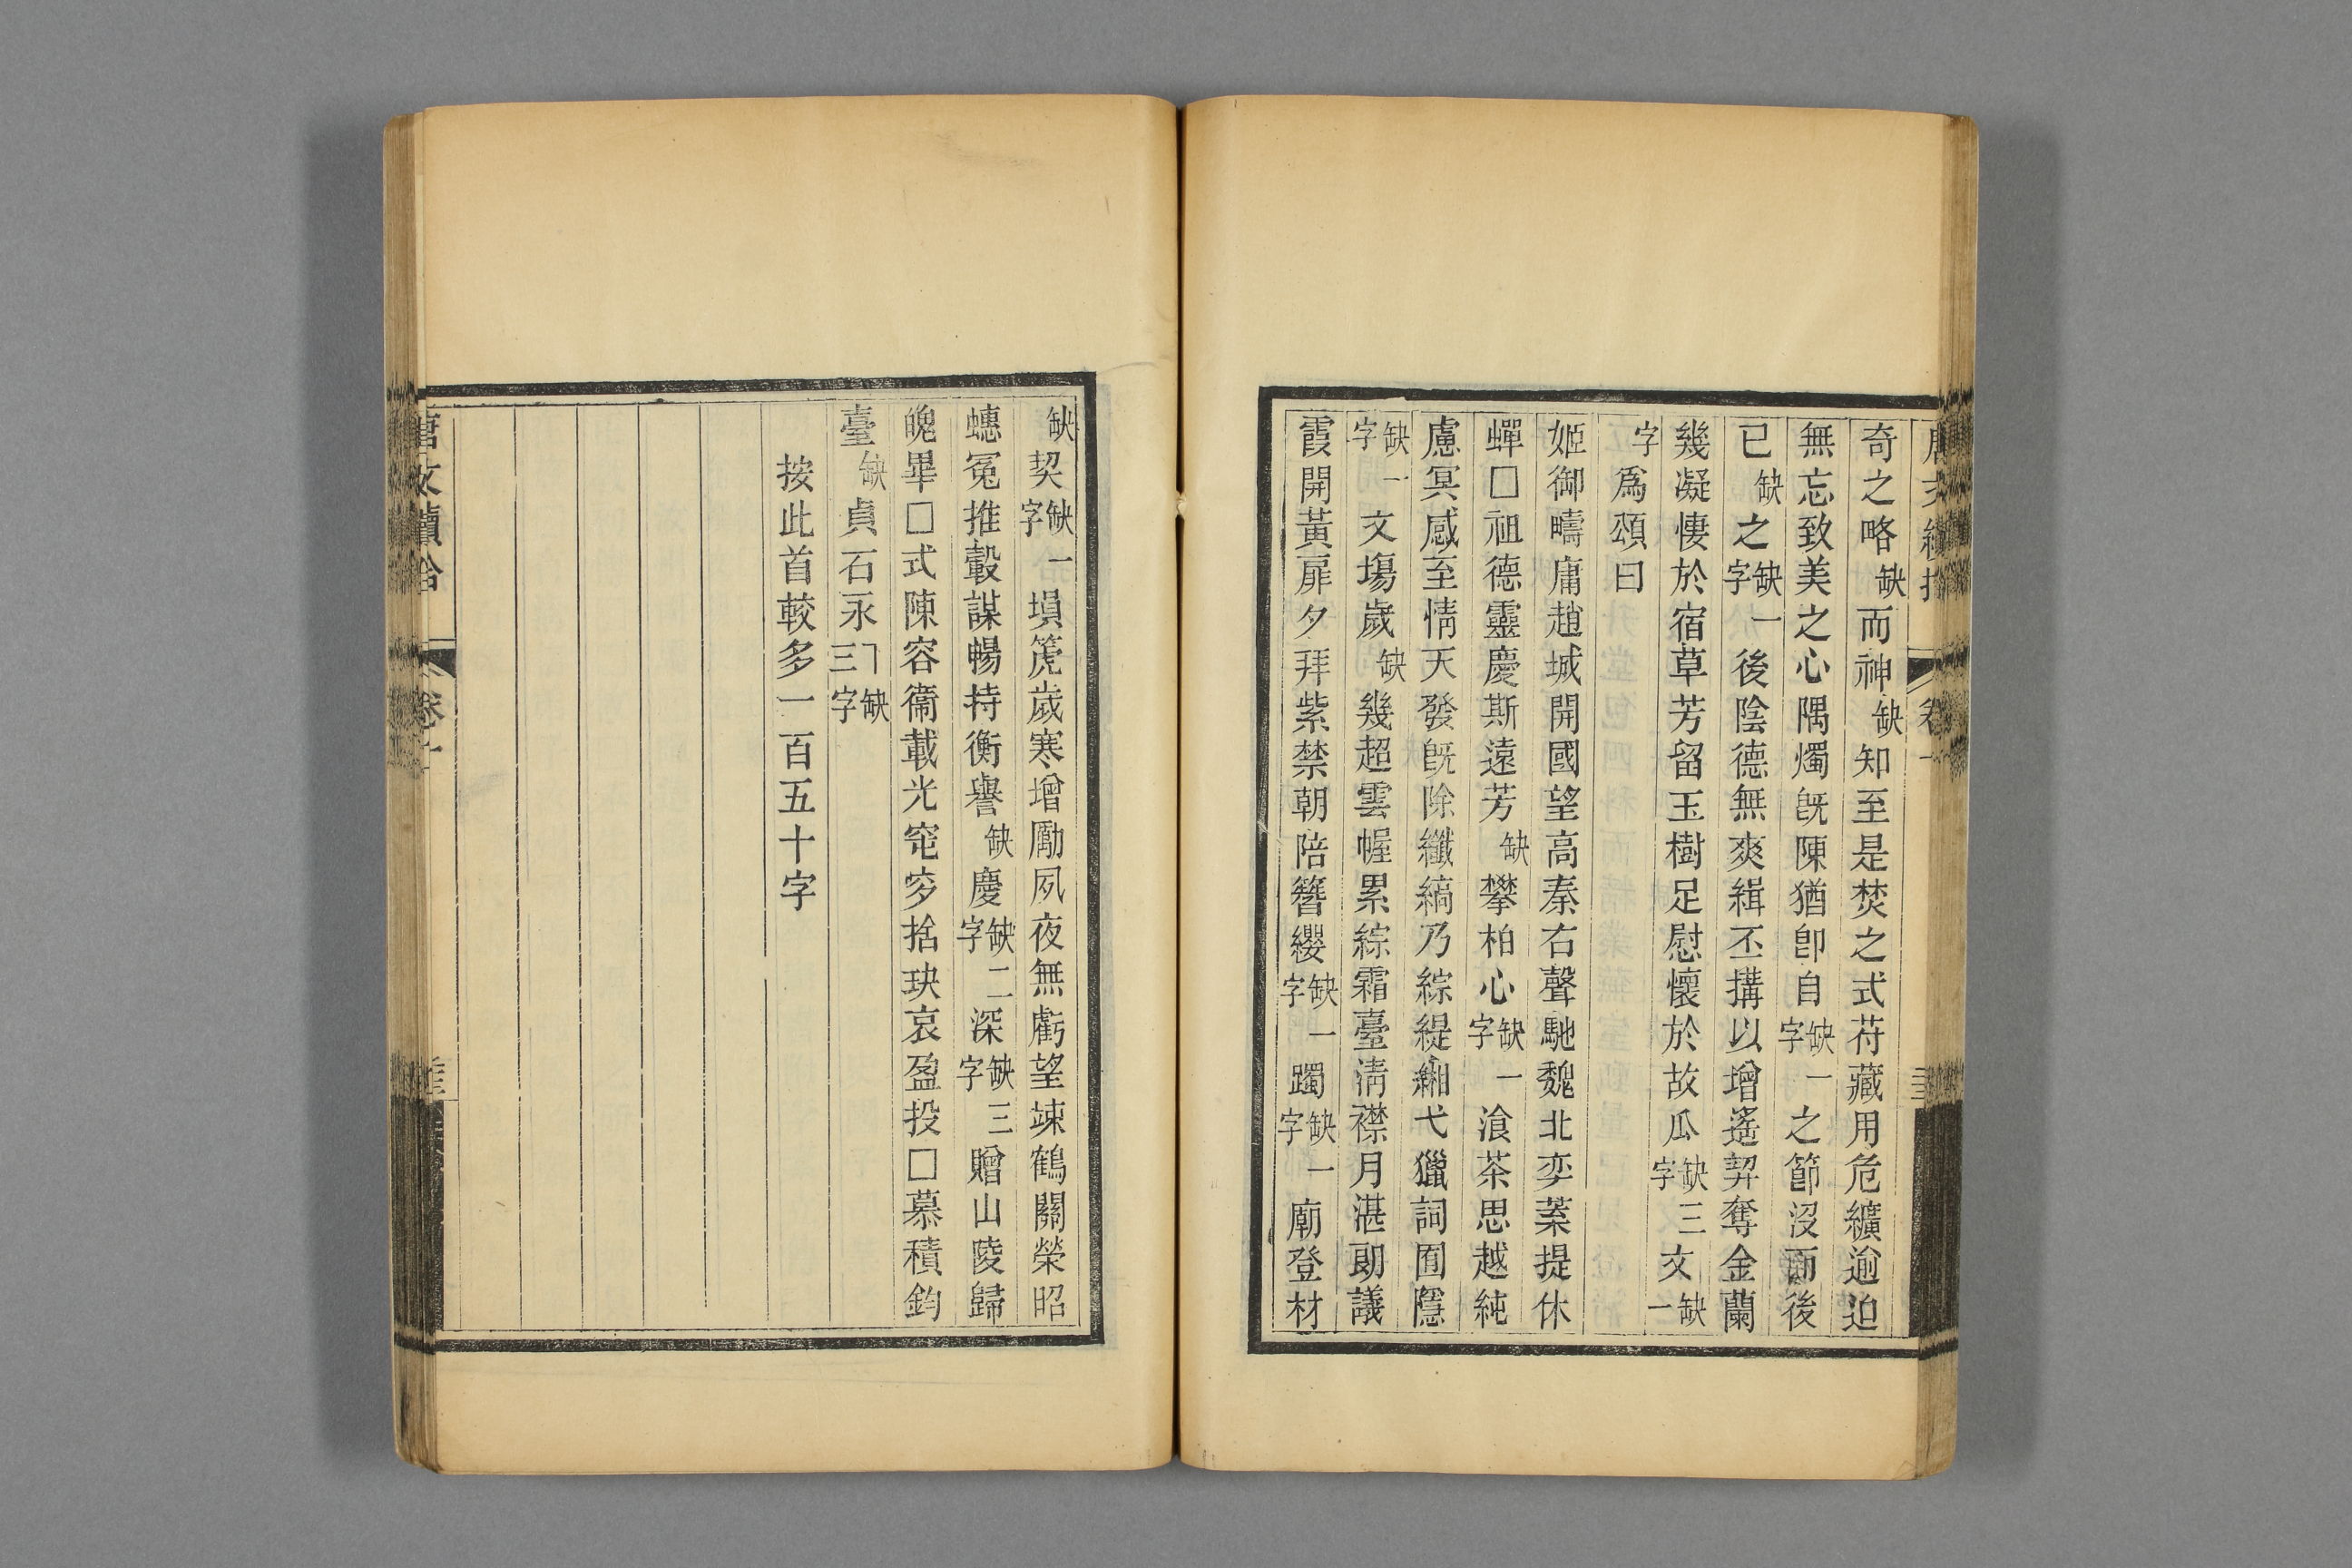 奇之略缺而神缺知至是焚之式苻藏用危纊逾迫
無忘致美之心隅燭旣陳猶卽自缺一字之節沒而後
已缺之缺一字後陰德無爽緝丕搆以增遙契奪金蘭
幾凝悽於宿草芳留玉樹足慰懷於故瓜缺三字文缺一
字爲頌曰
姬御疇庸趙城開國望高秦右聲馳魏北弈葉提休
蟬□祖德靈慶斯遠芳缺攀柏心缺一字飡茶思越純
慮冥感至情天發旣除纖縞乃綜緹緗弋獵詞囿隱
缺一字文場歲缺幾超雲幄累綜霜臺淸襟月湛朗議
霞開黃扉夕拜紫禁朝陪簪纓缺一字躅缺一字廟登材
缺契缺一字塤箎歲寒增勵夙夜無虧望竦鶴關榮昭
蟪冤推轂謀暢持衡譽缺慶缺二字深缺三字贈山陵歸
魄畢□式陳容衞載光窀穸捨玦哀盈投□慕積鈞
臺缺貞石永缺三字
按此首較多一百五十字
唐文續拾
卷十